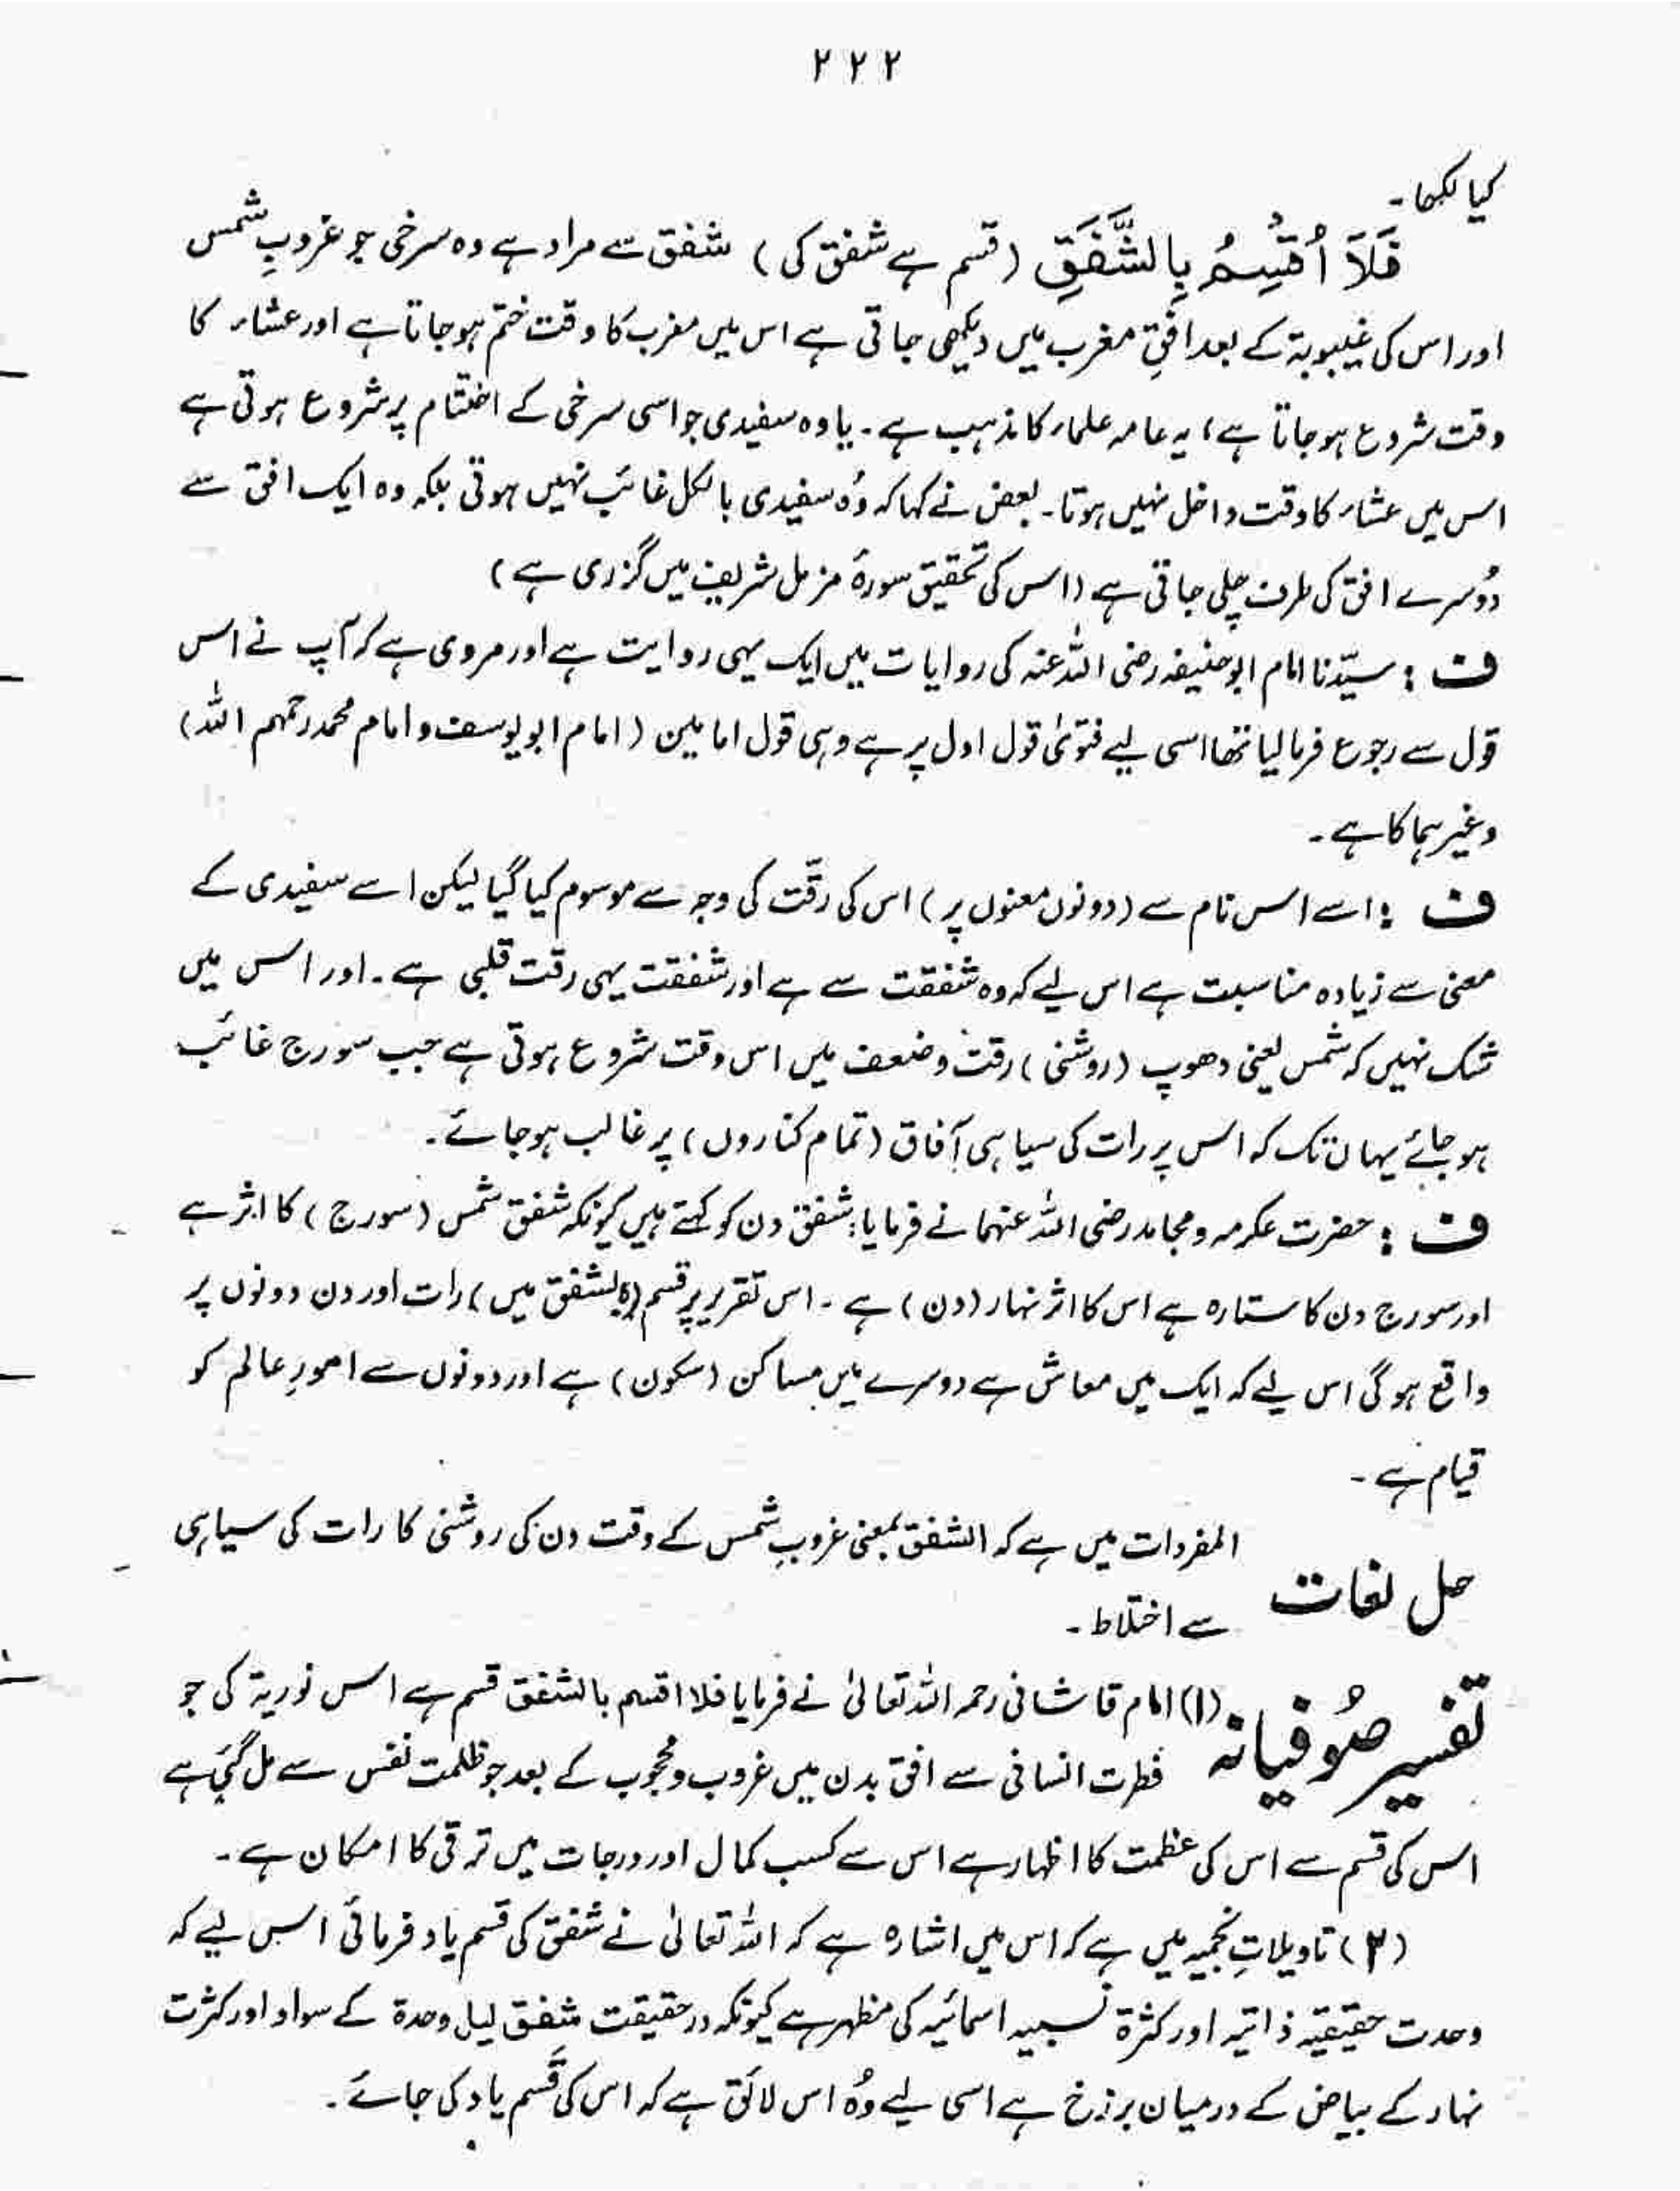 ۲۲۲
کیا لکھا۔
فَلَآ اُقْسِمُ بِالشَّفَقِ (قسم ہے شفق کی) شفق سے مراد ہے وہ سرخی جو غروبِ شمس
اور اس کی غیبوبۃ کے بعد افقِ مغرب میں دیکھی جاتی ہے اس میں مغرب کا وقت ختم ہوجاتا ہے اور عشاء کا
وقت شروع ہوجاتا ہے، یہ عامہ علماء کا مذہب ہے۔ یا وہ سفیدی جو اسی سرخی کے اختتام پر شروع ہوتی ہے
اس میں عشاء کا وقت داخل نہیں ہوتا۔ بعض نے کہا کہ وُہ سفیدی بالکل غائب نہیں ہوتی بلکہ وہ ایک افق سے
دُوسرے افق کی طرف چلی جاتی ہے (اس کی تحقیق سورۂ مزمل شریف میں گزری ہے)
ف : سیّدنا امام ابوحنیفہ رضی اللہ عنہ کی روایات میں ایک یہی روایت ہے اور مروی ہے کہ آپ نے اس
قول سے رجوع فرمالیا تھا اسی لیے فتوٰی قول اول پر ہے وہی قول امامین (امام ابویوسف و امام محمد رحمہم اللہ)
وغیرہما کا ہے۔
ف : اسے اس نام سے (دونوں معنوں پر) اس کی رقّت کی وجہ سے موسوم کیا گیا لیکن اسے سفیدی کے
معنی سے زیادہ مناسبت ہے اس لیے کہ وہ شفقت سے ہے اور شفقت یہی رقت قلبی ہے۔ اور اس میں
شک نہیں کہ شمس یعنی دھوپ (روشنی) رقت و ضعف میں اس وقت شروع ہوتی ہے جب سورج غائب
ہوجائے یہاں تک کہ اس پر رات کی سیاہی آفاق (تمام کناروں) پر غالب ہوجائے۔
ف : حضرت عکرمہ و مجاہد رضی اللہ عنہما نے فرمایا: شفق دن کو کہتے ہیں کیونکہ شفق شمس (سورج) کا اثر ہے
اور سورج دن کا ستارہ ہے اس کا اثر نہار (دن) ہے۔ اس تقریر پر قسم (بالشفق میں) رات اور دن دونوں پر
واقع ہوگی اس لیے کہ ایک میں معاش ہے دوسرے میں مساکن (سکون) ہے اور دونوں سے امورِ عالم کو
قیام ہے۔
حل لغات المفردات میں ہے کہ الشفق بمعنی غروبِ شمس کے وقت دن کی روشنی کا رات کی سیاہی
سے اختلاط۔
تفسیر صُوفیانہ (۱) امام قاشانی رحمہ اللہ تعالیٰ نے فرمایا فلا اقسم بالشفق قسم ہے اس نوریۃ کی جو
فطرت انسانی سے افق بدن میں غروب و محجوب کے بعد جو ظلمت نفس سے مل گئی ہے
اس کی قسم سے اس کی عظمت کا اظہار ہے اس سے کسب کمال اور درجات میں ترقی کا امکان ہے۔
(۲) تاویلاتِ نجمیہ میں ہے کہ اس میں اشارہ ہے کہ اللہ تعالیٰ نے شفق کی قسم یاد فرمائی اس لیے کہ
وحدت حقیقیہ ذاتیہ اور کثرۃ نسبیہ اسمائیہ کی مظہر ہے کیونکہ درحقیقت شفق لیل وحدۃ کے سواد اور کثرت
نہار کے بیاض کے درمیان برزخ ہے اسی لیے وُہ اس لائق ہے کہ اس کی قَسم یاد کی جائے۔